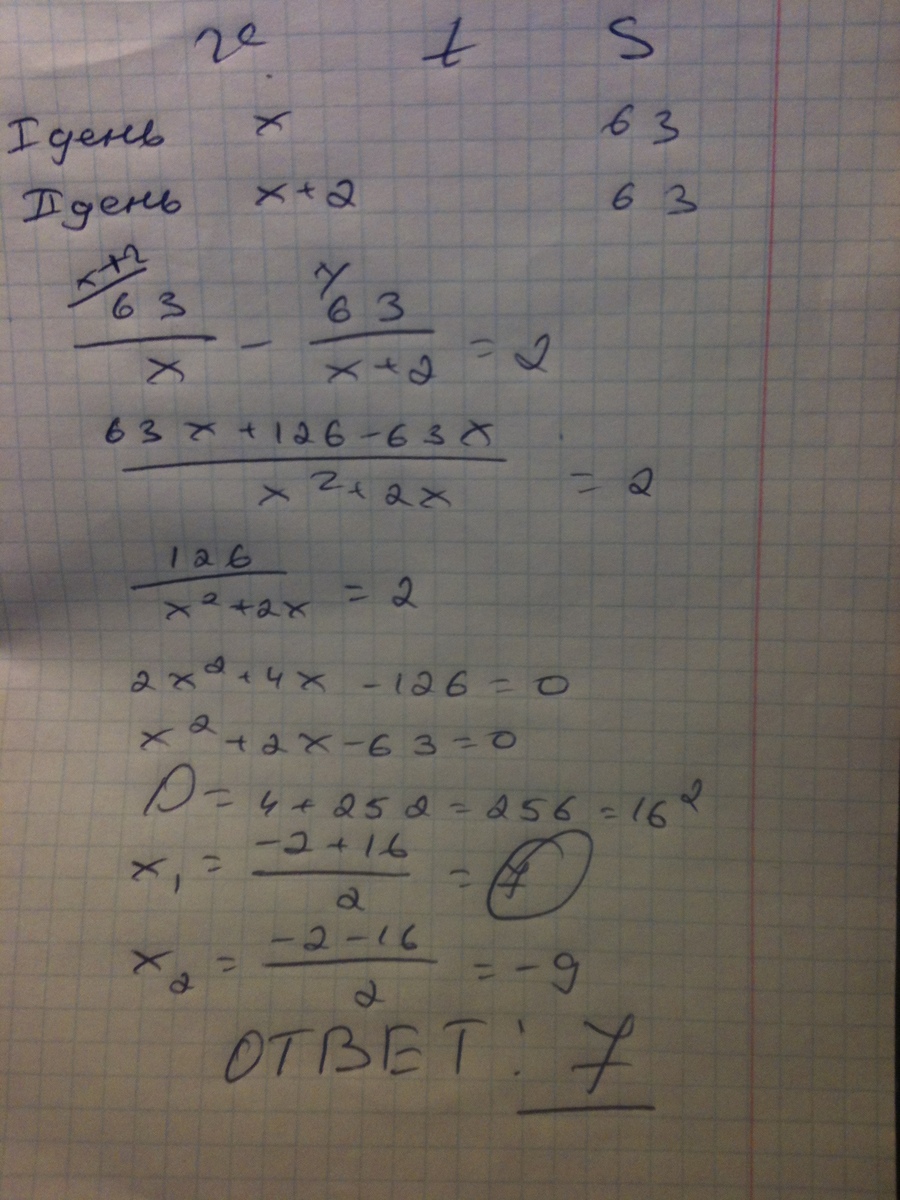 v t S
I день x 63
II день x+2 63
x+2 x
63/x - 63/(x+2) = 2
(63x+126-63x)/(x²+2x) = 2
126/(x²+2x) = 2
2x²+4x-126=0
x²+2x-63=0
D=4+252=256=16²
x₁ = (-2+16)/2 = 7
x₂ = (-2-16)/2 = -9
ОТВЕТ: 7